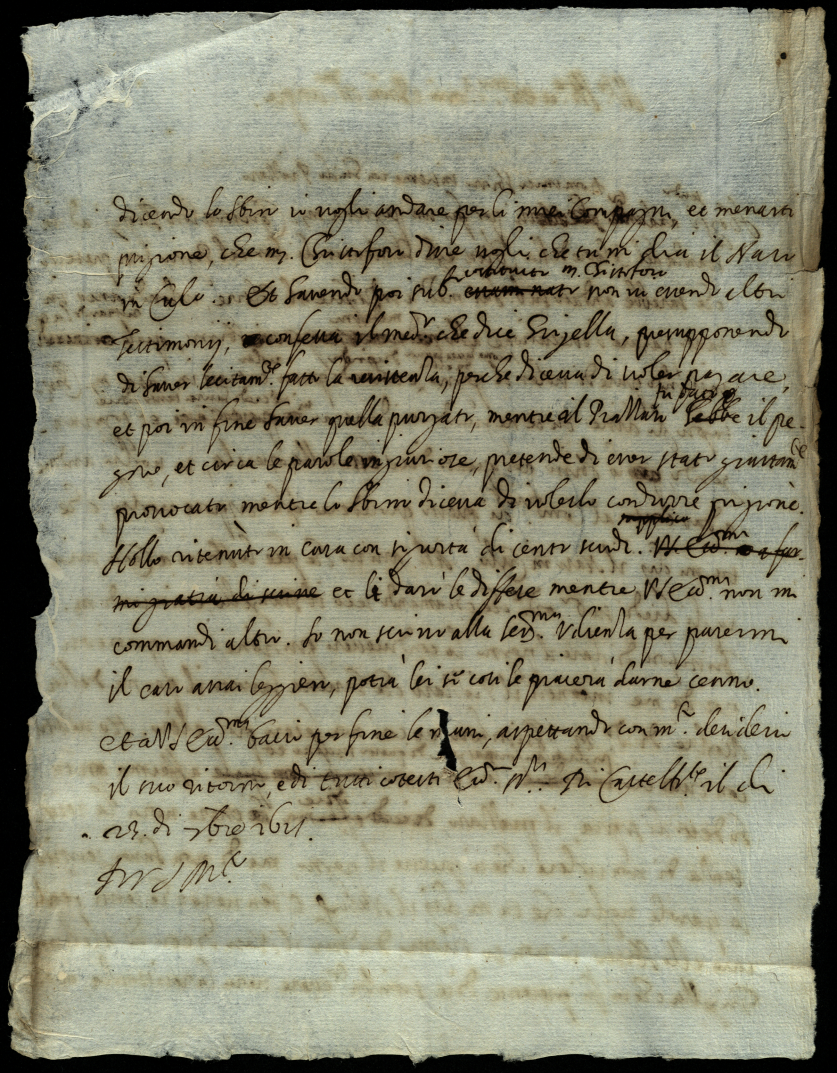 dicendo lo sbirro io voglio andare per li miei Compagni, et menarti
prigione, che m. Christiforo dire voglio che tu mi dia il Naso
in Culo. Et havendo poi sub. m. Christiforo non vi essendo altri
testimonij, confessa il med.º che dice Grisella, presupponendo
di haver lecitam.te fatto la resistenza, perche diceva di voler pagare,
et poi in fine haver quella purgato, mentre al il pe-
gno, et circa le parole ingiuriose, pretende di esser stato giustam.te
provocato mentre lo Sbirro diceva di volerlo condurre prigione.
Hollo ritenuto in casa con sigurtà di cento scudi. supplico V.S. Ecc.ma a far-
mi gratia di scrivere et li darò le diffese mentre V.S. Ecc.ma non mi
commandi altro. Io non scrivo alla Ser.ma Udienza per parermi
il caso assai leggiero, potrà lei se così le piacerà darne cenno.
et a V.S. Ecc.ma bacio per fine le mani, aspettando con m.to desiderio
il suo ritorno, e di tutti cotesti Ecc.mi SS.ri Di Castell il di
23. di 7bre 1621.
Di V.S. M.to